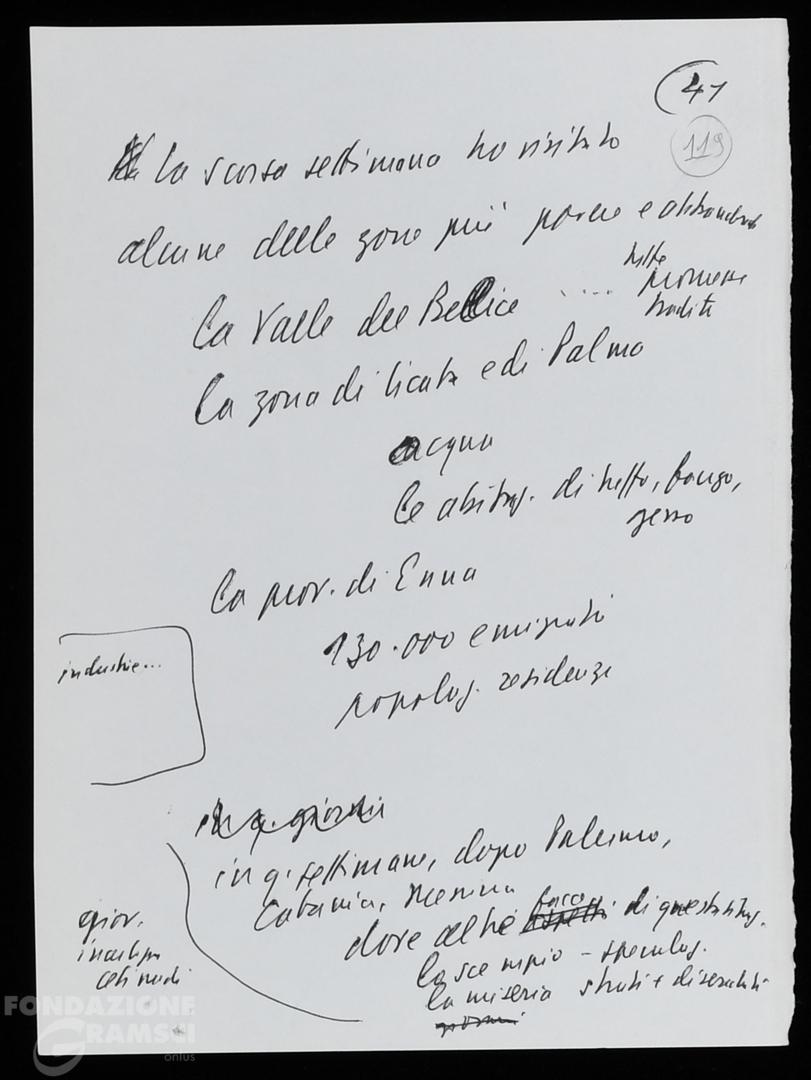 41
119
La scorsa settimana ho visitato
alcune delle zone più povere e abbandonate
La Valle del Bellice .... tutte
promesse
tradite
La zona di Licata e di Palma
acqua
le abitaz. di tuffo, fango,
gesso
La prov. di Enna
130.000 emigrati
popolaz. residenze
industrie...
in q. giorni
in q. settimane, dopo Palermo,
Catania, Messina
dove altre facce di questa situaz.
lo scempio - speculaz.
la miseria strati diseredati
giovani
giov.
ceti medi
FONDAZIONE
GRAMSCI
onlus